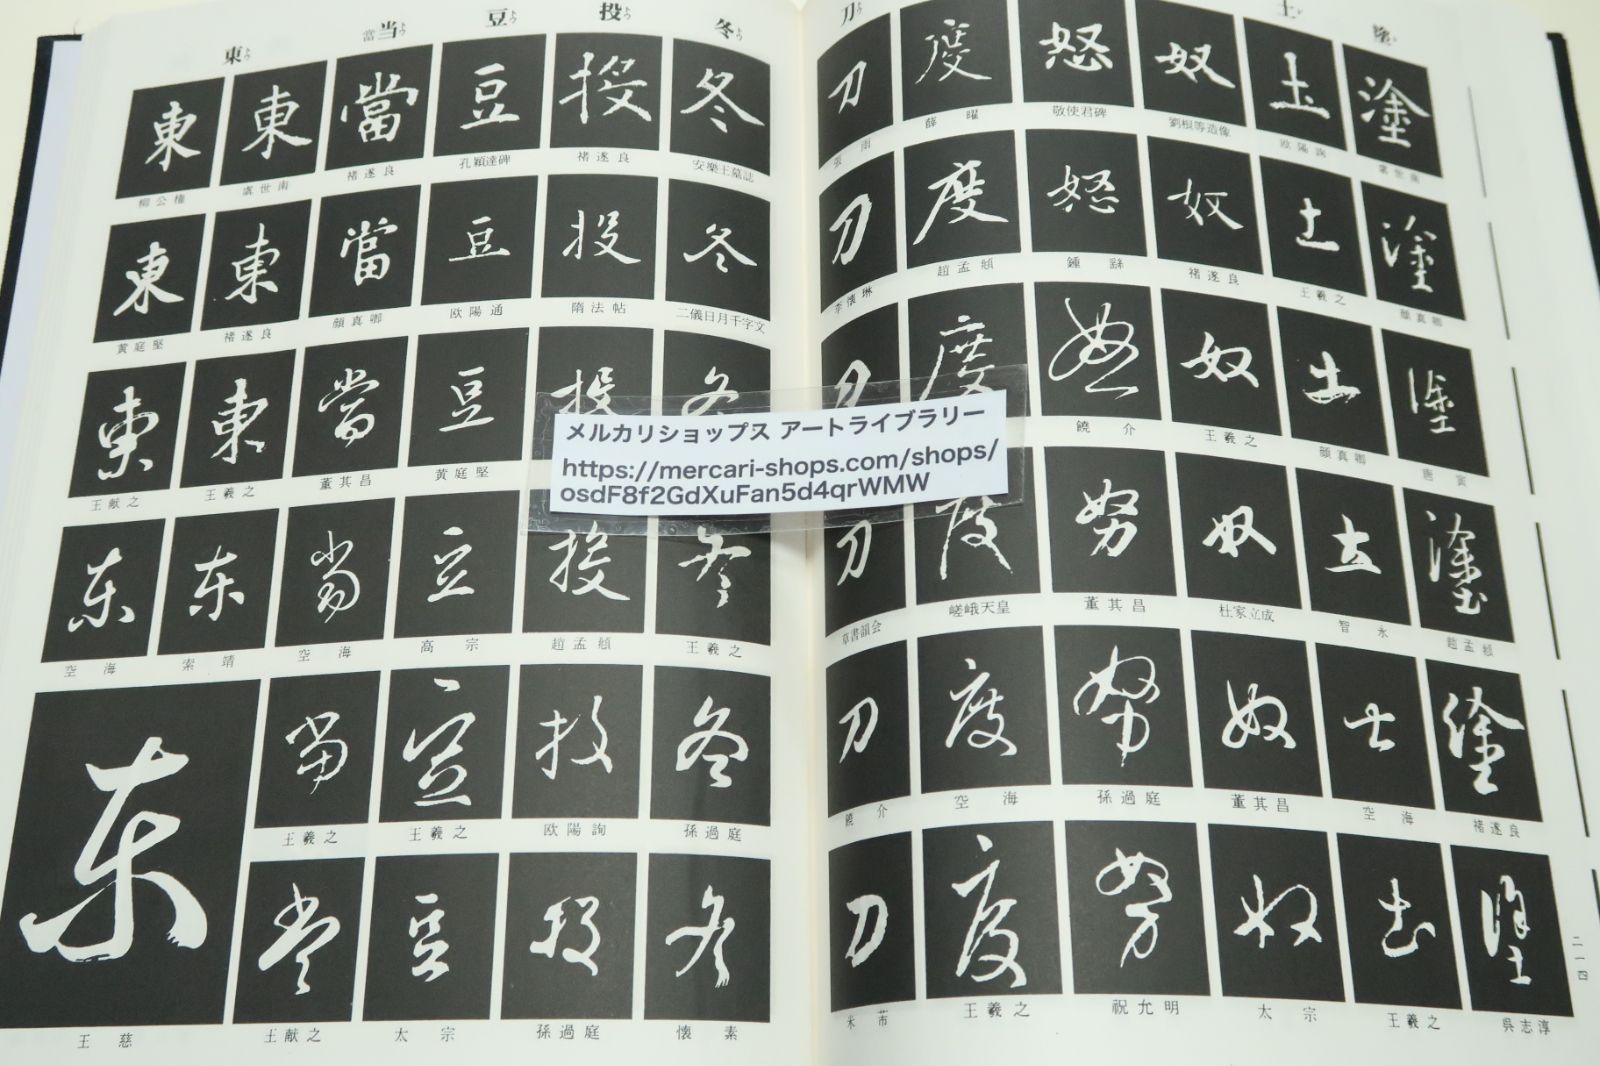 東 当 當 豆 投 冬
東 東 當 豆 投 冬
柳公権 虞世南 褚遂良 孔穎達碑 褚遂良 安樂王墓誌
東 東 當 豆 投 冬
黄庭堅 褚遂良 顔真卿 欧陽通 隋法帖 二儀日月千字文
東 東 當 豆 投 冬
王献之 王羲之 董其昌 黄庭堅
東 東 當 豆 投 冬
空海 索靖 空海 高宗 趙孟頫 王羲之
東 當 豆 投 冬
王羲之 王羲之 欧陽詢 孫過庭
當 豆 投 冬
王慈 王献之 太宗 孫過庭 懐素
メルカリショップス アートライブラリー
https://mercari-shops.com/shops/
osdF8f2GdXuFan5d4qrWMW
刀 土 塗
刀 度 怒 奴 土 塗
張雨 薛曜 敬使君碑 劉根等造像 欧陽詢 虞世南
刀 度 怒 奴 土 塗
李懐琳 趙孟頫 鍾繇 褚遂良 王羲之 顔真卿
刀 度 怒 奴 土 塗
饒介 王羲之 顔真卿 唐寅
刀 度 努 奴 土 塗
草書韻会 嵯峨天皇 董其昌 杜家立成 智永 趙孟頫
刀 度 努 奴 土 塗
饒介 空海 孫過庭 董其昌 空海 褚遂良
刀 度 努 奴 土 塗
米芾 王羲之 祝允明 太宗 王羲之 呉志淳
二一四